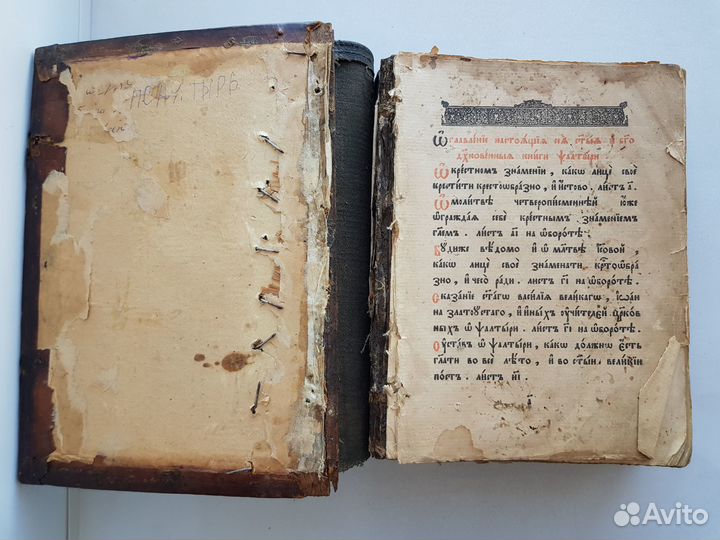 ПСАЛТЫРЬ
Ѡглавленіе настоящїѧ сеѧ ст҃ыѧ и бг҃о
дх҃новенныѧ книги ѱалтыри
Ѡ крестномъ знаменїи, какѡ лице своѐ
крестити крестоѡбразно, и истово. листъ а҃.
Ѡ молитвѣ четверописменнѣй юже
ѡграждаѧ себѐ крестнымъ знаменїемъ
гл҃емъ. листъ а҃і на ѡборотѣ.
Буди же вѣдомо и ѡ мл҃твѣ Іс҃овой,
какѡ лице своѐ знаменати крт҃оѡбра
зно, и чесо ради. листъ г҃і на ѡборотѣ.
Сказанїе ст҃агѡ василїа великагѡ, Іѡан
на златоустаго, и иныхъ оучителей цр҃ков
ныхъ ѡ ѱалтыри. листъ г҃і на ѡборотѣ.
Оуставъ ѡ ѱалтыри, какѡ должнѡ есть
гл҃ати во все лѣто, и во ст҃ый великїй
постъ. листъ н҃і.
а҃
Avito